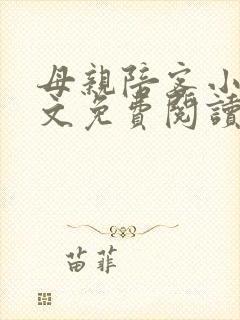 母親陪客小
文免費閱讀
苗菲